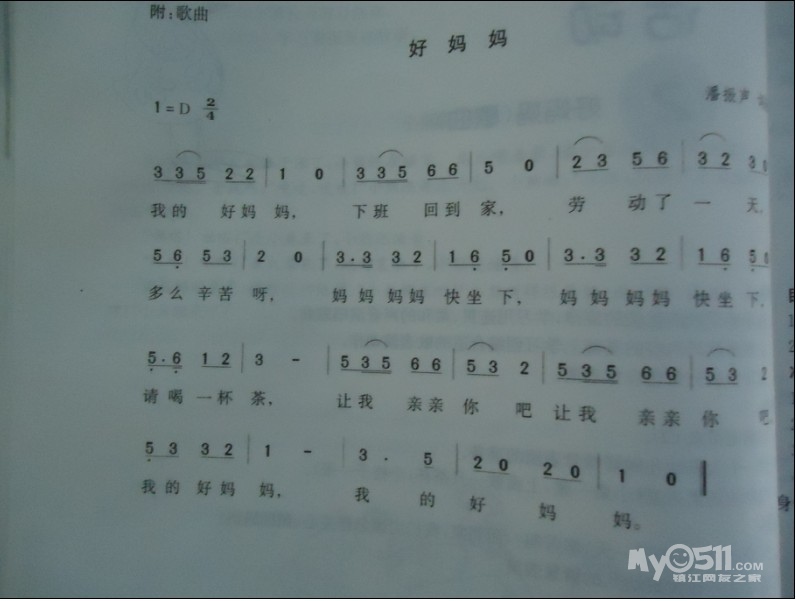 附：歌曲
好妈妈
1=D 2/4
潘振声
3 3 5 2 2 | 1 0 | 3 3 5 6 6 | 5 0 | 2 3 5 6 | 3 2 3 0
我的 好妈妈， 下班 回到家， 劳 动了 一 天，
5 6 5 3 | 2 0 | 3·3 3 2 | 1 6 5 0 | 3·3 3 2 | 1 6 5 0
多么辛苦呀， 妈妈妈妈快坐下， 妈妈妈妈快坐下，
5·6 1 2 | 3 - | 5 3 5 6 6 | 5 3 2 | 5 3 5 6 6 | 5 3 2
请喝一杯茶， 让我 亲亲你 吧 让我 亲亲你 吧
5 3 3 2 | 1 - | 3· 5 | 2 0 2 0 | 1 0 ‖
我的好妈妈， 我 的 好 妈 妈。
身
My0511.COM
镇江网友之家